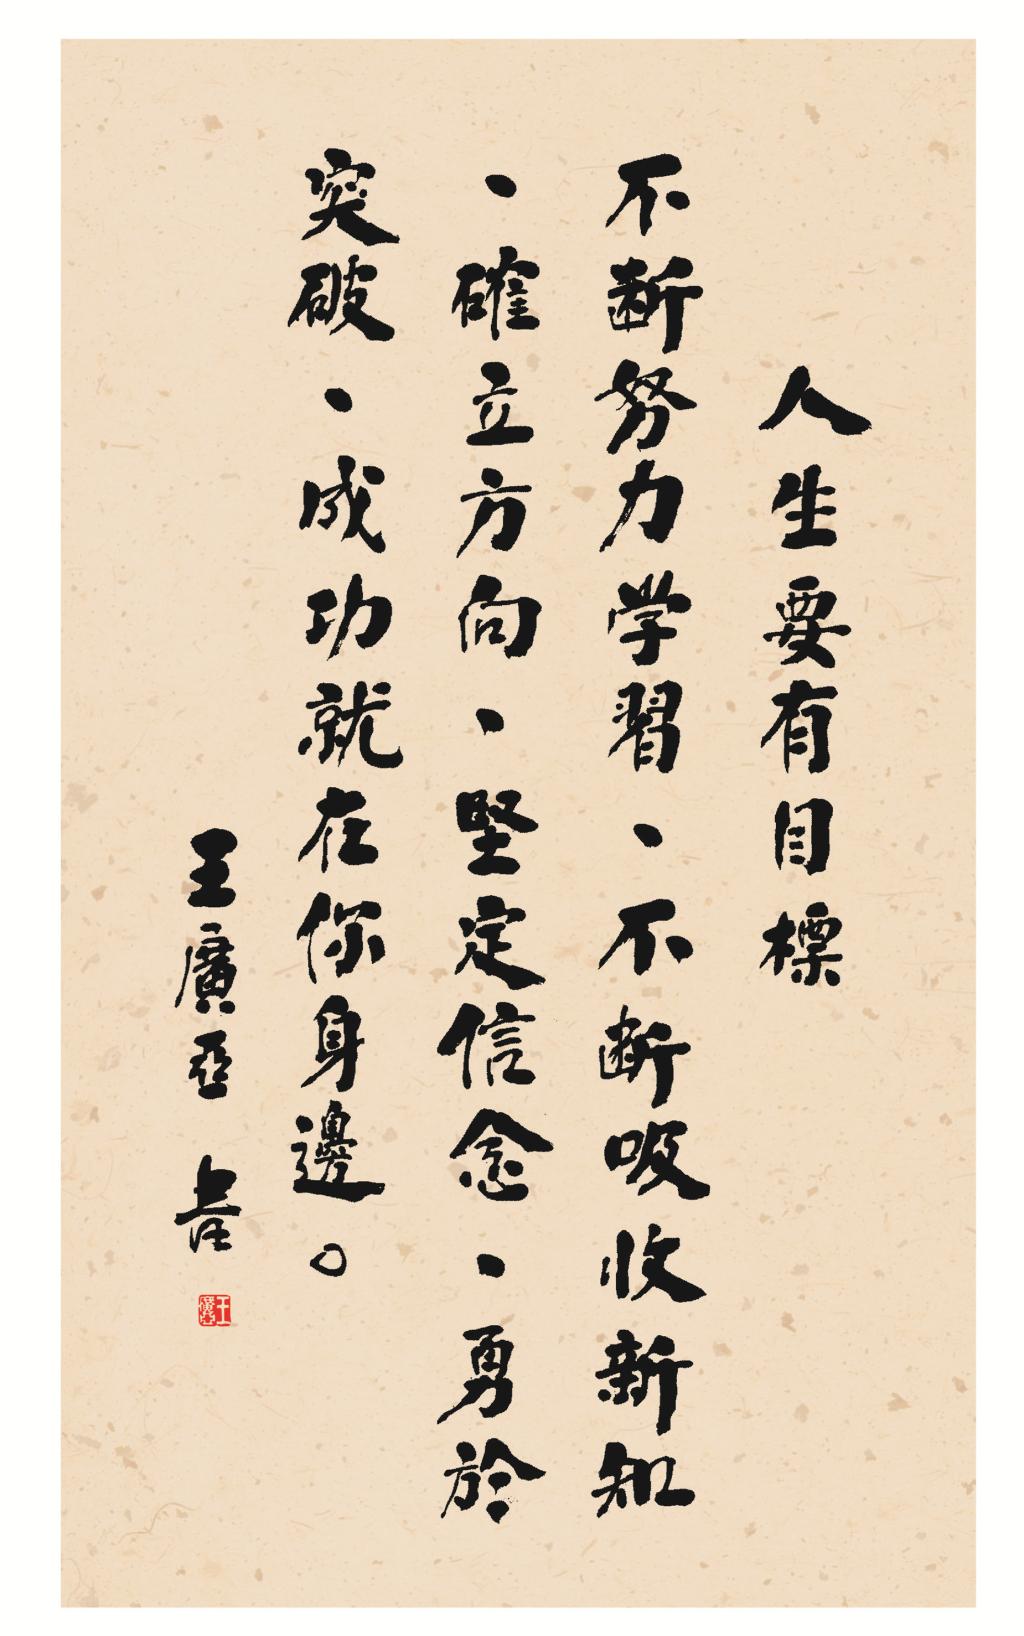 人生要有目標
不斷努力学習、不断吸收新知
、確立方向、堅定信念、勇於
突破、成功就在你身邊。
王廣亞 書
王廣亞